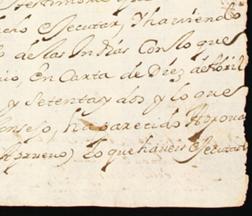 cho Executar, Y haviendo
de las Indias Con lo que
io, en Carta de Diez de Abril
y Setenta y dos y lo que
onsejo, ha parecido Aprova
Apruevo) lo que haveis Executa